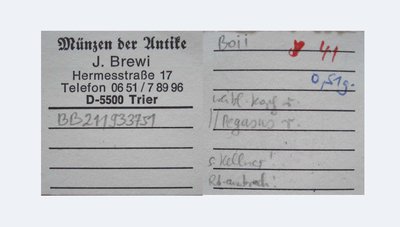 Münzen der Antike
J. Brewi
Hermesstraße 17
Telefon 06 51 / 7 89 96
D-5500 Trier
BB211933751
Boii
41
0,51g.
weibl. Kopf r.
//Pegasus r.
s. Kellner!